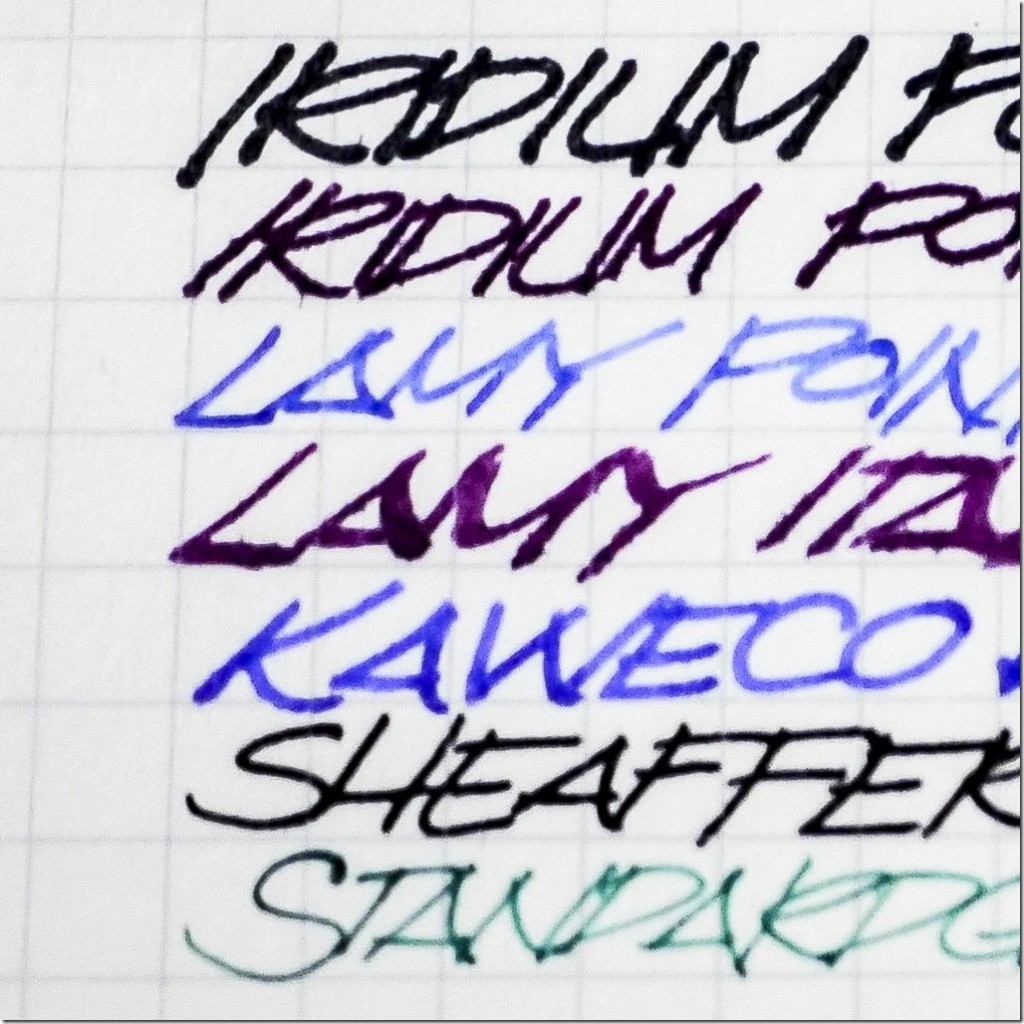 IRIDIUM PO
IRIDIUM POI
LAMY POIN
LAMY ITA
KAWECO
SHEAFFER
STANDARDG